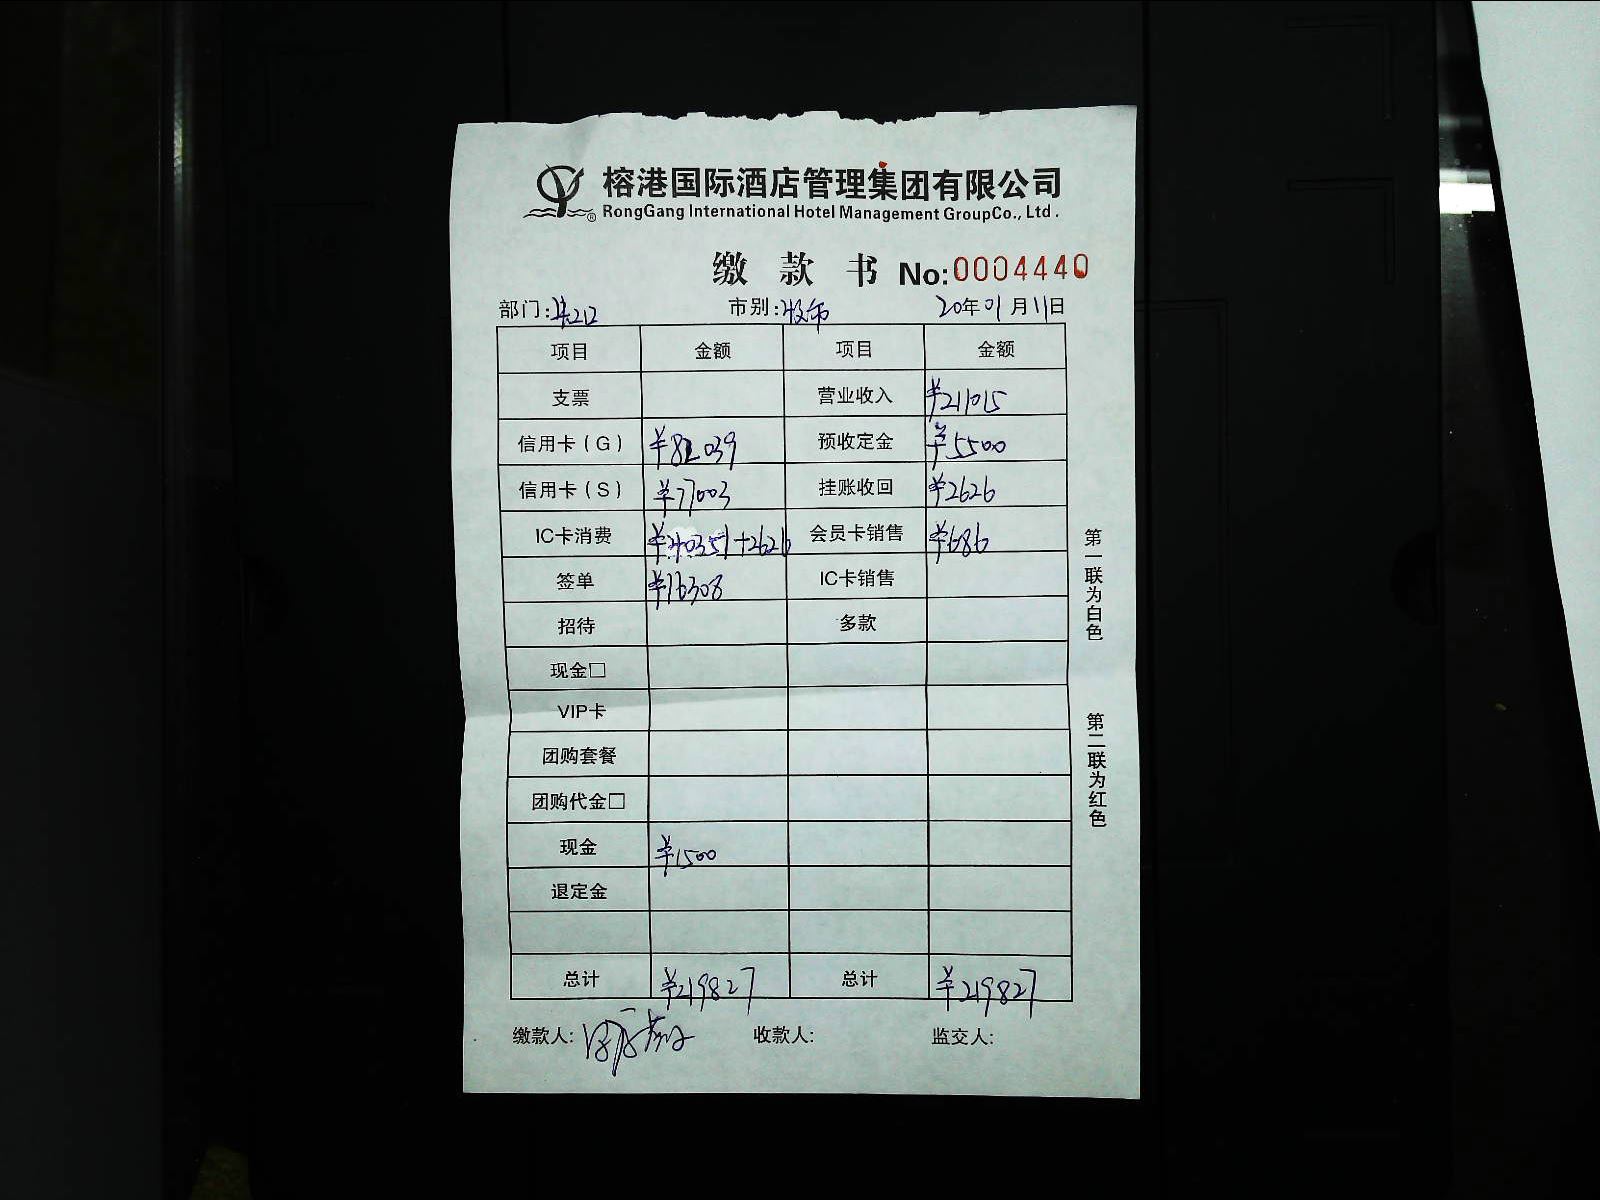 榕港国际酒店管理集团有限公司
® RongGang International Hotel Management GroupCo., Ltd.
缴款书 No:0004440
部门: 市别:夜市 20年01月11日
项目 金额 项目 金额
支票 营业收入 ¥211015
信用卡(G) ¥82039 预收定金 ¥5500
信用卡(S) ¥77003 挂账收回 ¥2626
IC卡消费 ¥40351+2626 会员卡销售 ¥686
签单 ¥16308 IC卡销售
招待 多款
现金□
VIP卡
团购套餐
团购代金□
现金 ¥1500
退定金
总计 ¥219827 总计 ¥219827
缴款人: 收款人: 监交人:
第一联为白色
第二联为红色